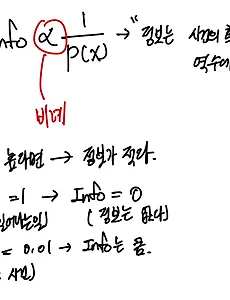 nfo ∝ 1/P(X) → "정보는 사건의 확
역수에
비례
높다면 → 정보가 적다.
=1 → Info = 0
(정보는 없다)
= 0.01 → Info는 큼.
사건)